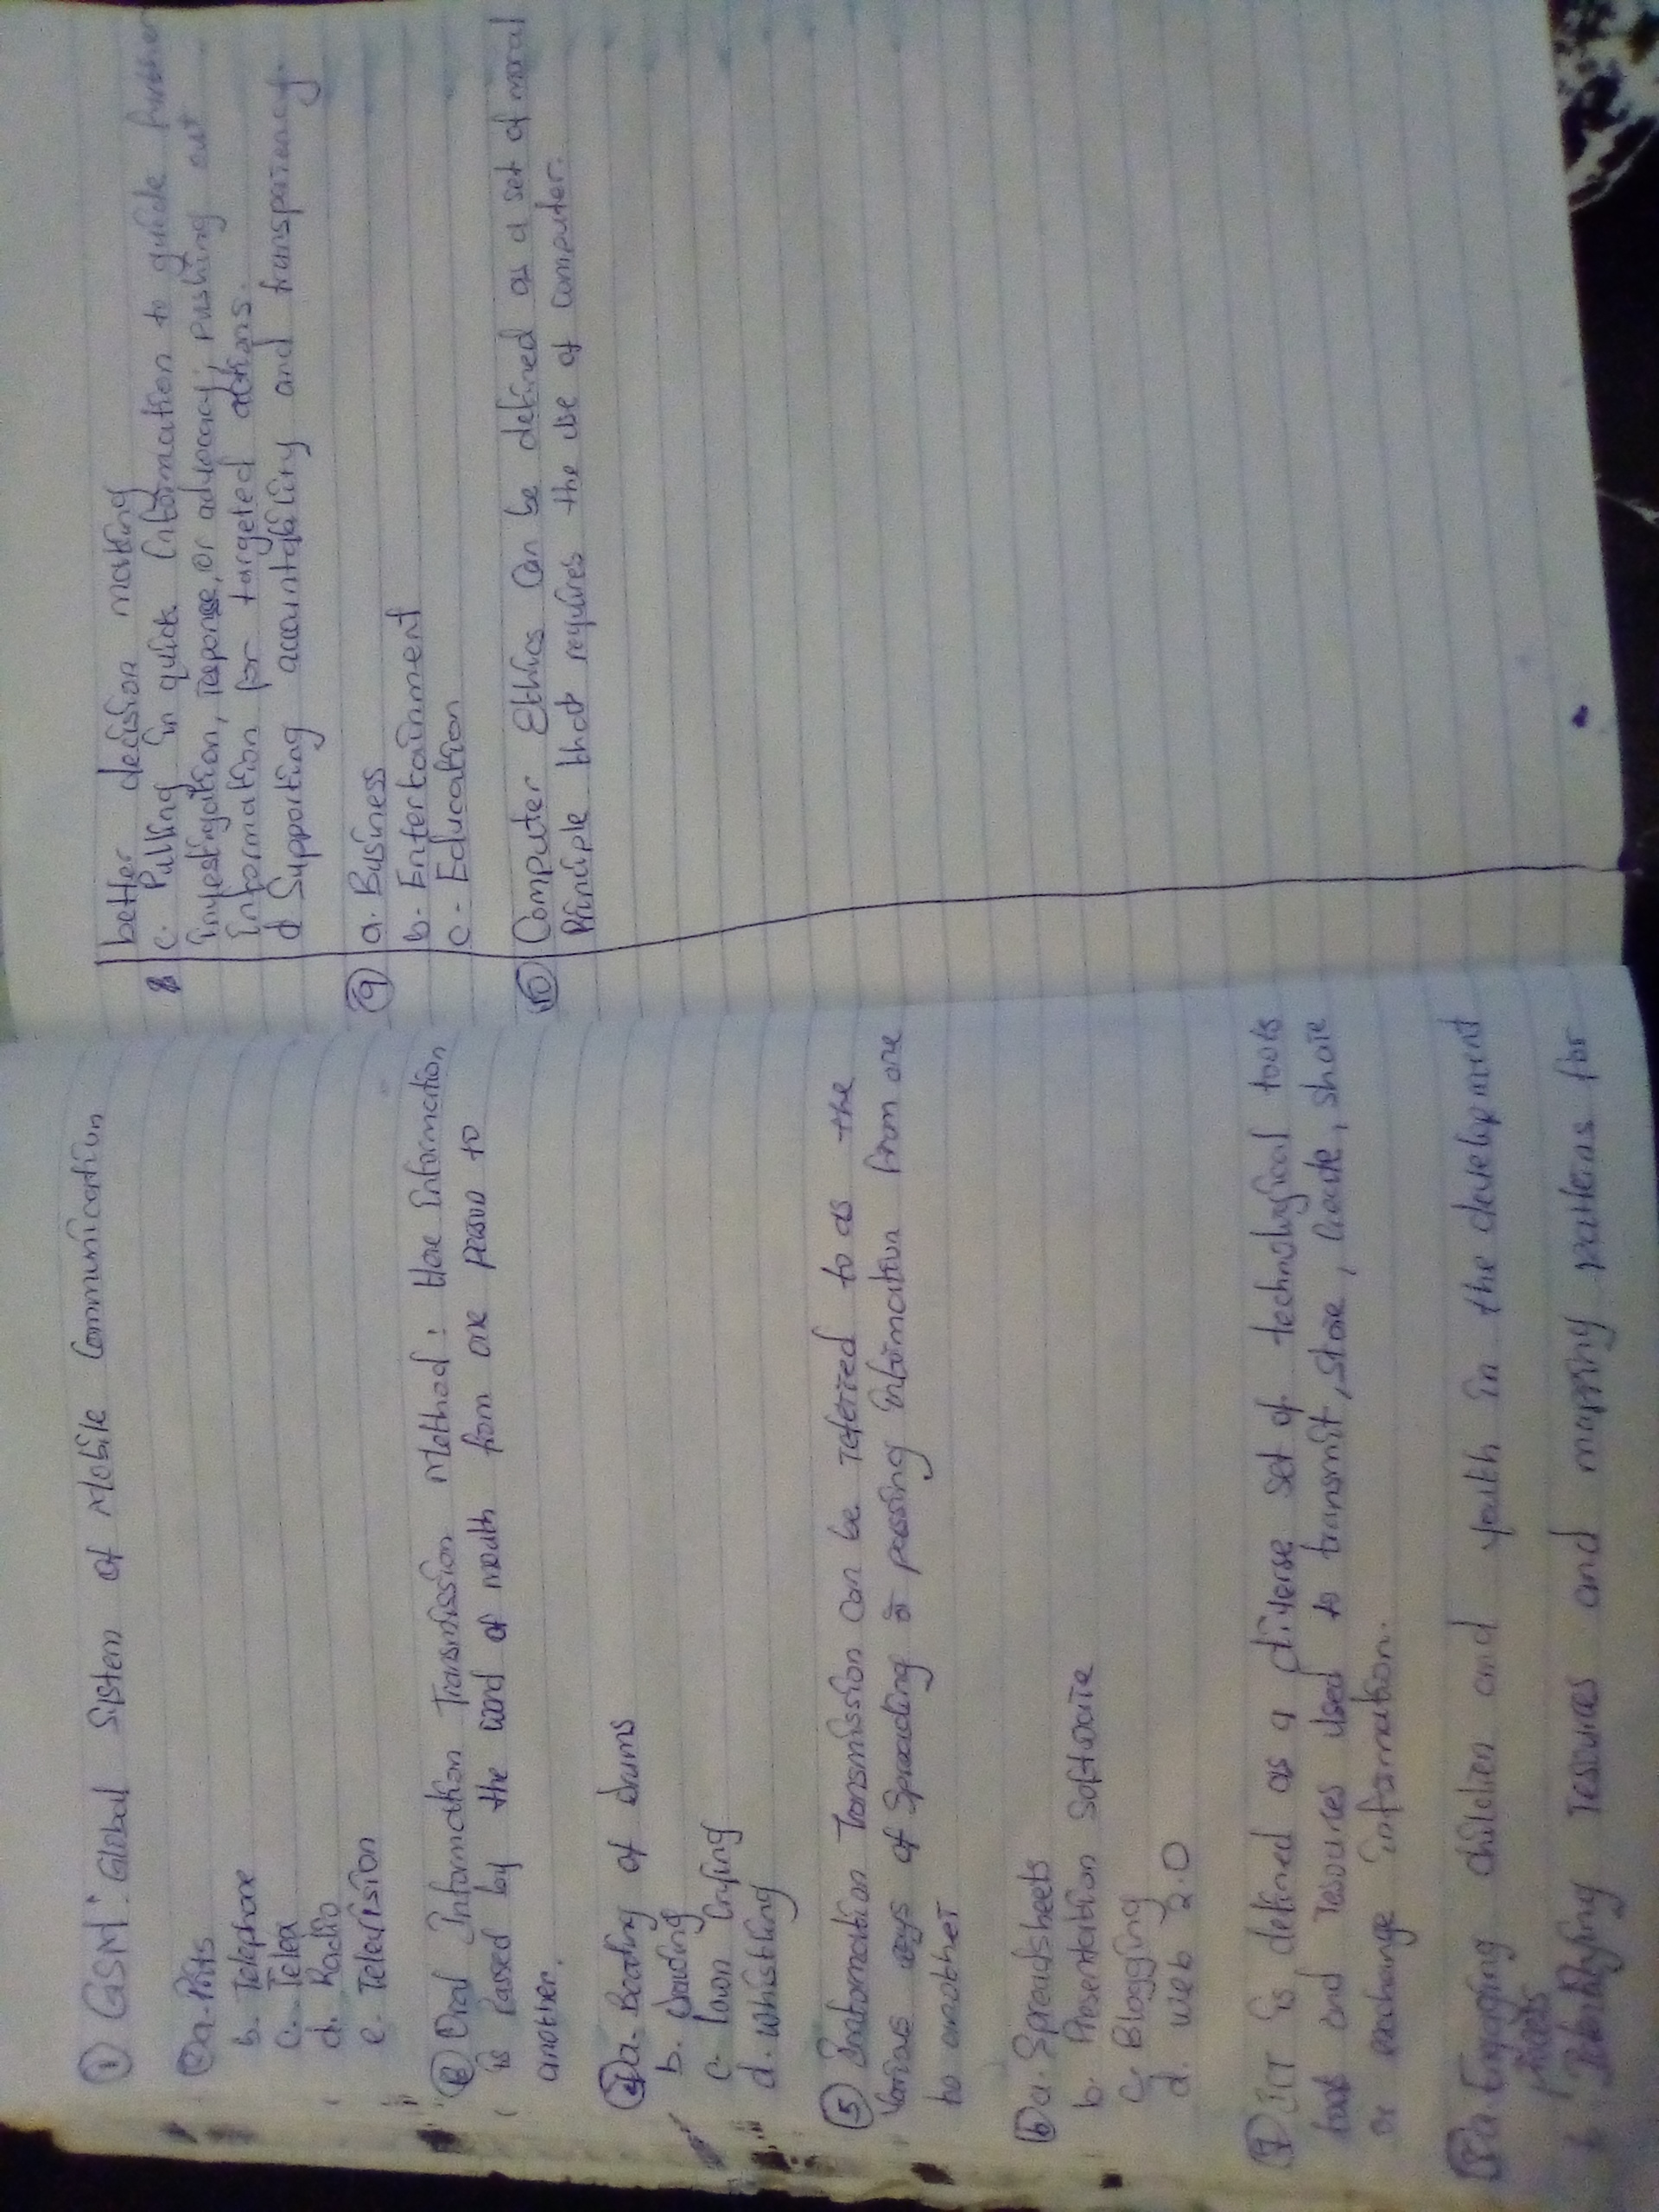 ① GSM: Global Sistem of Mobile Communication
② a. Prits
b. Telephone
c. Telex
d. Radio
e. Television
Oral Information Transmission Method: Here Information
is Passed by the word of mouth from one person to
another.
④ a. Beating of drums
b.
c. Town Crying
d. Whistling
⑤ Information Transmission Can be referred to as the
Various ways of Spreading or passing information from one
to another
⑥ a. Spreadsheets
b. Presentation Software
c. Blogging
d. Web 2.0
⑦ ICT is defined as a diverse set of technological tools
and resources used to transmit, store, create, share
or exchange information.
⑧ a. Engaging children and youth in the development
b Identifying Issues and mapping patterns for
better decision making
8 c. Pulling in quick information to guide further
investigation, response, or advocacy, pushing out
information for targeted actions.
d Supporting accountability and transparency.
⑨ a. Business
b. Entertainment
c. Education
⑩ Computer Ethics Can be defined as a set of moral
Principle that requires the use of Computer.